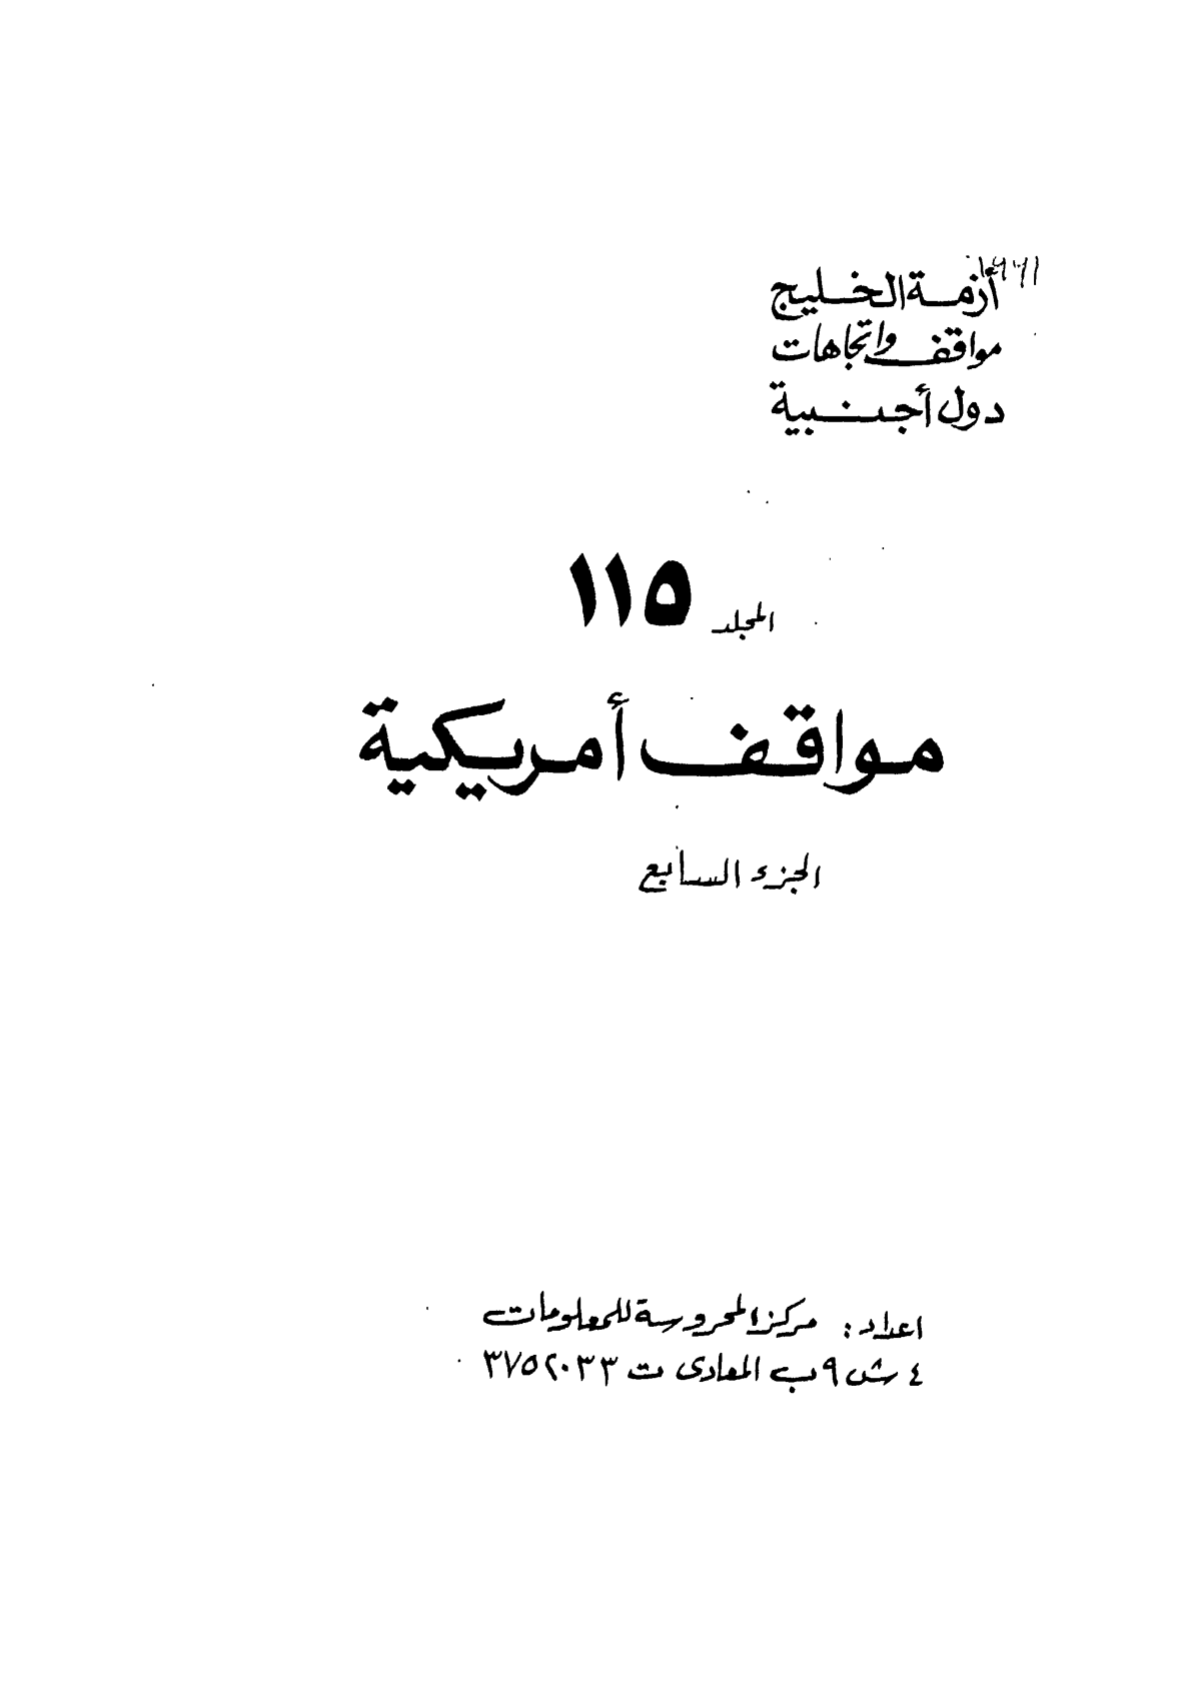 أزمة الخليج
مواقف واتجاهات
دول أجنبية
المجلد ١١٥
مواقف أمريكية
الجزء السابع
اعداد: مركز المحروسة للمعلومات
٤ ش ٩ب المعادى ت ٣٧٥٢٠٣٣